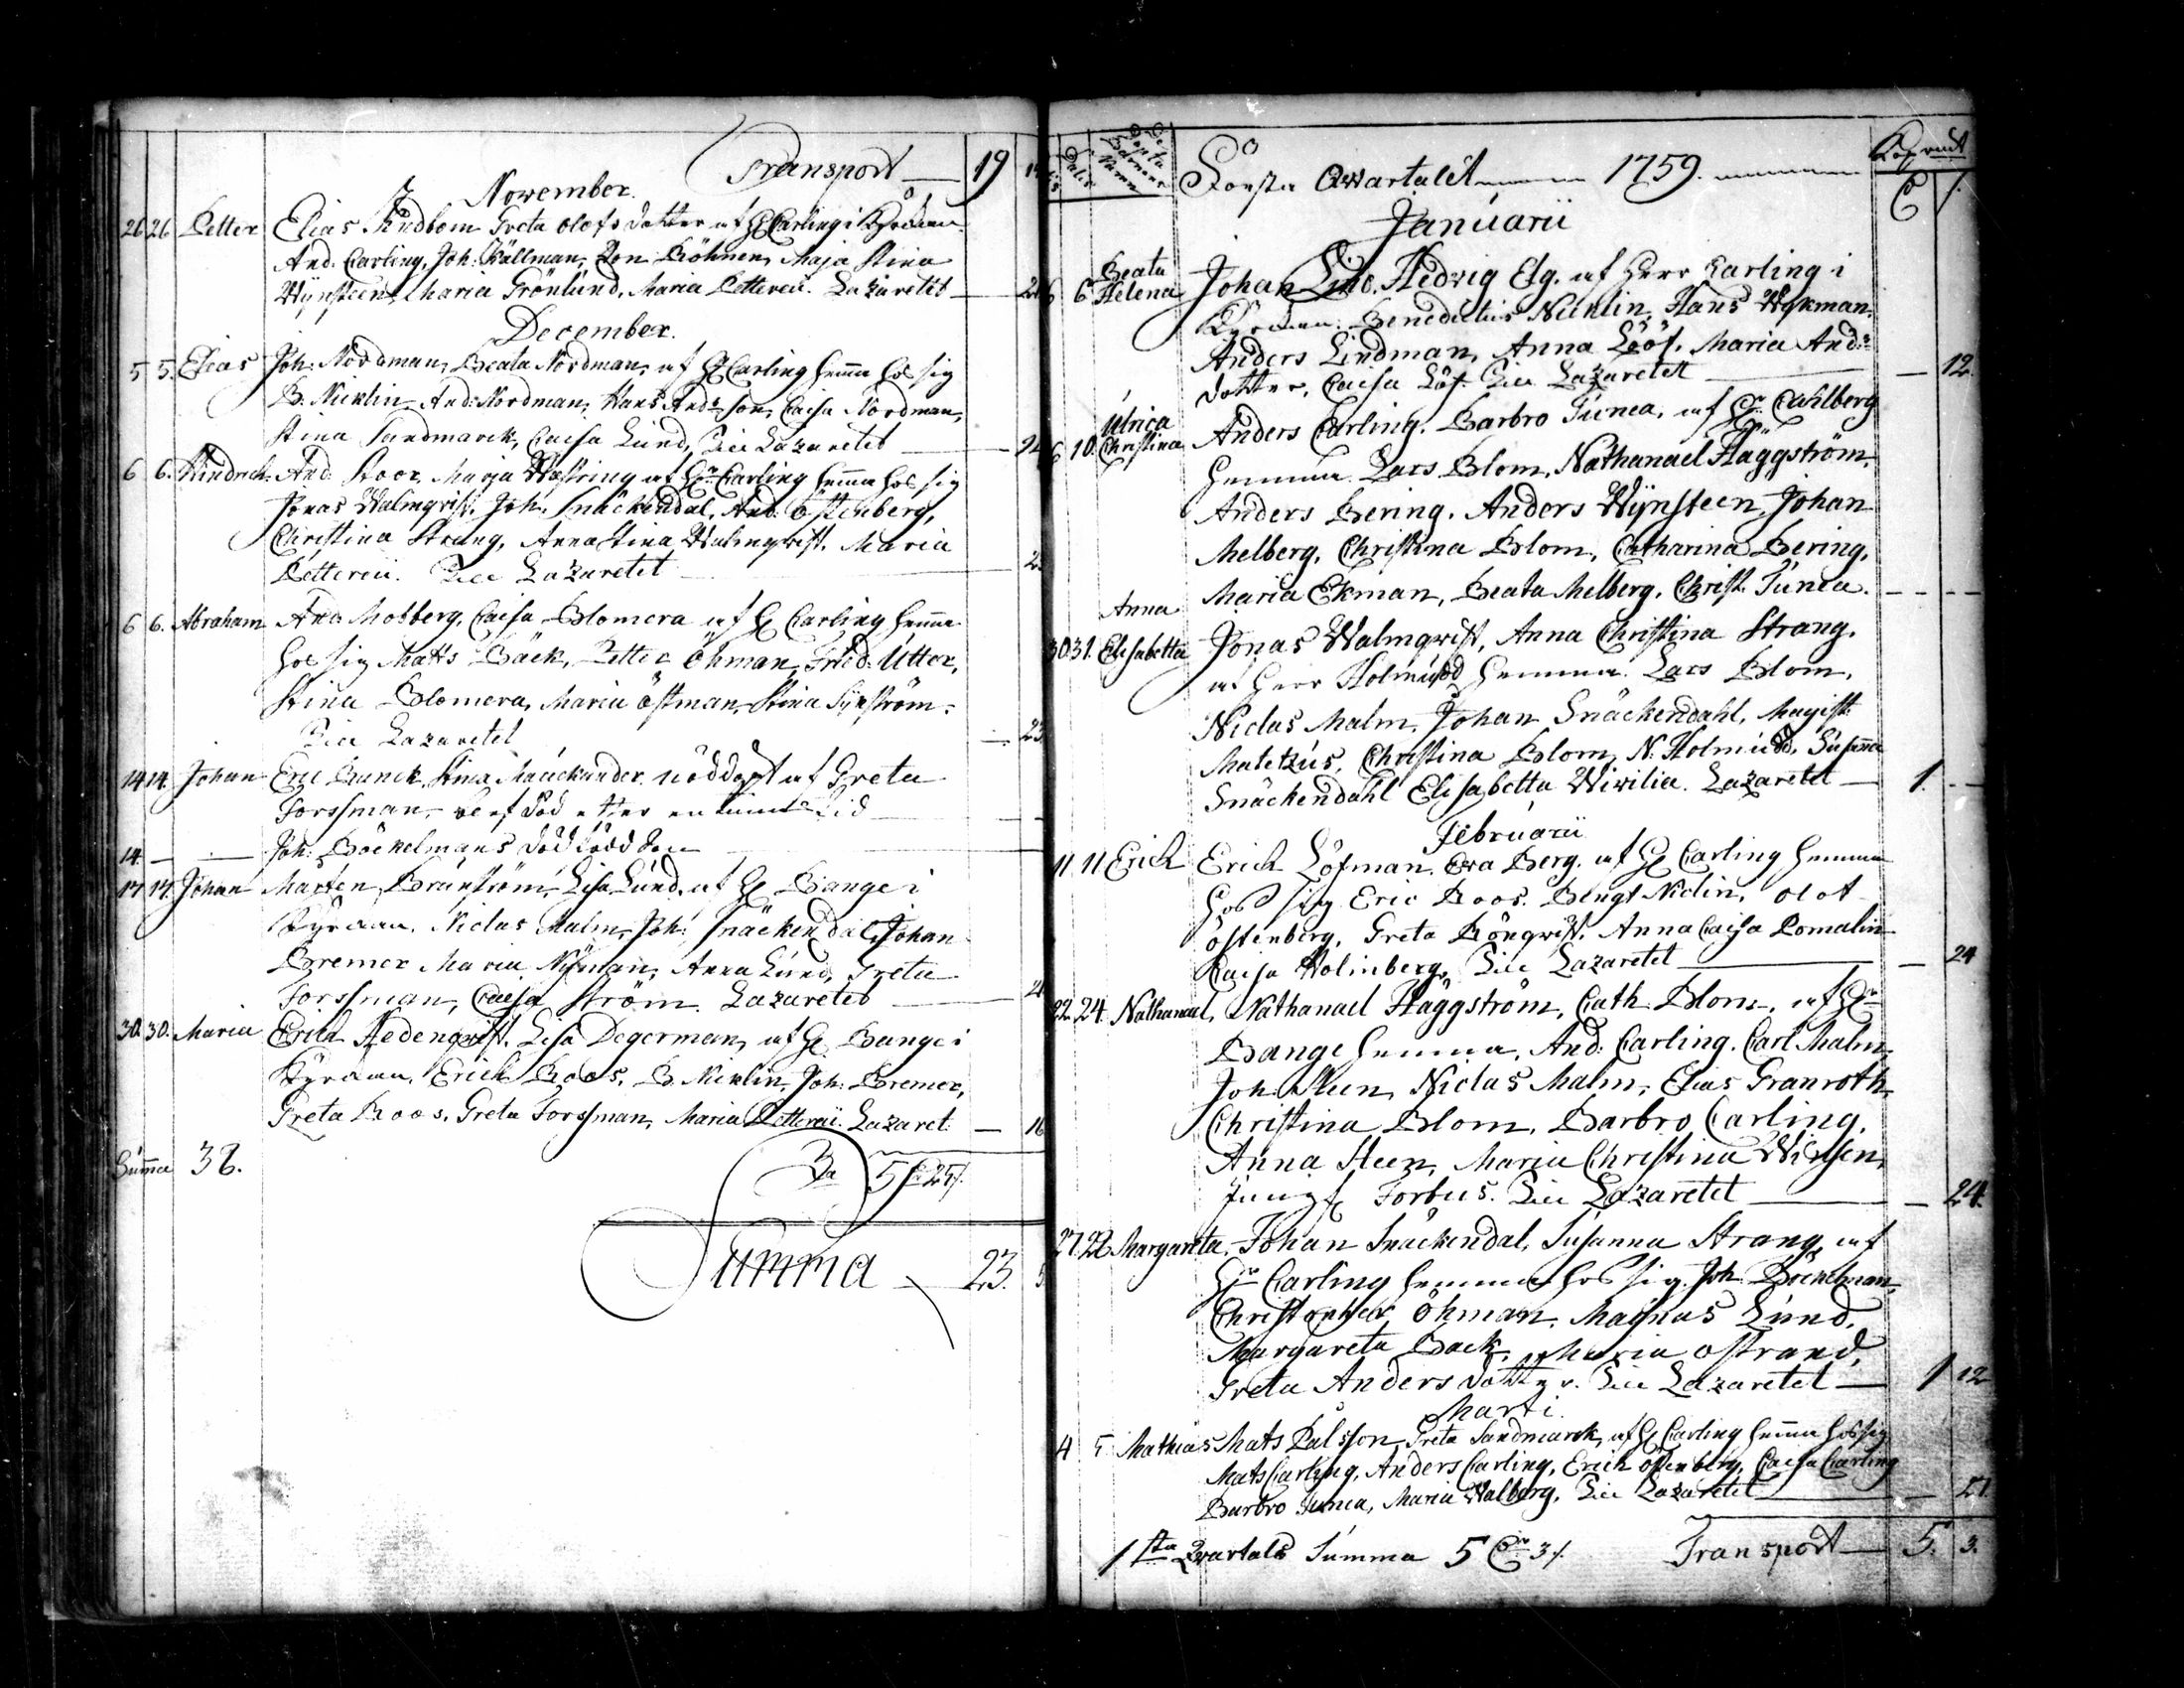 Transport — 19
November.
26 26 Petter Elias Lindbom Greta Olofs dotter af H Carling i Kyrckan
And. Carling, Joh: Källman, Maja Stina
Wynsteen, Maria Grönlund, Maria Petterii. Lazaretet —
December.
5 5. Elias Joh: Nordman, Beata Nordman, af H Carling hema hos sig
B. Nicklin And: Nordman, Hans Andsson, Caisa Nordman,
Stina Sandmarck, Caisa Lund, Lazaretet
6 6. Hindrich And: Roos, Marja Westring af Hr Carling hema hos sig
Jonas Walmqvist, Joh. Snäckendal, And. Östenberg,
Christina Strang, Anna Stina Walmqvist, Maria
Petterii. Lazaretet
6 6. Abraham And Moberg, Caisa Blomera af H Carling hema
hos sig Matts Bäck, Petter Öhman, Fred: Utter,
Stina Blomera, Maria Östman, Stina
Lazaretet
14 14 Johan Eric Bunck, Stina nöddöpt af Greta
Forssman, blef död efter en tima tid
14 — — Joh: Böckelmans dödfödd Son
17 17. Johan Mårten Brunström, Lisa Lund, af H Bange i
Kyrckan. Niclas Malm, Joh: Snäckendal, Johan
Bremer Maria Nyman, Anna Lund, Greta
Forssman, Caisa Ström. Lazaretet
30. 30. Maria Erick Hedenqvist, Lisa Degerman, af H Bange i
Kyrckan, Erich Boos, B. Nicklin, Joh: Bremer,
Greta Boos, Greta Forssman, Maria Petterii. Lazaret — 16
Summa 38.
Summa — 23.
Döpta Barnens Namn
Första Qvartalet 1759.
Januarii
6 6 Beata
Helena Johan Lind, Hedvig Elg. af Herr Carling i
Kyrckan. Benedictus Nicklin, Hans Wykman,
Anders Lindman, Anna Lööf, Maria And:s
dotter, Caisa Löf. Lazaretet — 12.
Ulrica
6 10. Christina Anders Carling. Barbro Tunea, af Hr. Dahlberg
hemma. Lars Blom, Nathanael Häggström,
Anders Bering. Anders Wynsteen, Johan
Melberg, Christina Blom, Catharina Bering,
Maria Ekman, Beata Melberg, Christ. Tunea. - - - -
Anna
30 31. Elisabetta Jonas Walmqvist, Anna Christina Strang.
af Herr Holmudd hemma. Lars Blom,
Niclas Malm, Johan Snäckendahl, Magist:
Christina Blom, N. Holmudd, Susanna
Snäckendahl Elisabetta Wivilia. Lazaretet — 1. - -
Februarii
11 11 Erich Erich Löfman, Eva Berg. af H Carling hemma
hos sig Eric Boos. Bengt Niclin, Olof
Östenberg, Greta Rönqvist, Anna Caisa Pomalin
Caisa Holmberg, Lazaretet — 24
22 24 Nathanael, Nathanael Häggström, Cath. Blom, af Hr
Bange hemma, And: Carling. Carl Malm,
Joh: Steen, Niclas Malm, Elias Granroth,
Christina Blom, Barbro Carling,
Anna Steen, Maria Christina
Jungf Forbus. Lazaretet — 24.
27 28 Margareta, Johan Snäckendal, Susanna Strang, af
Hr Carling hemma hos sig. Joh. Böckelman,
Christopher Öhman, Magnus Lund,
Margareta Back, Maria Östrand,
Greta Anders dotter. Lazaretet — 1 12
Marti
4 5 Mathias Mats Pålsson, Greta Sandmarck, af H Carling hema hos sig
Mats Carling, Anders Carling, Erich Östenberg, Caisa Carling
Barbro Tunea, Maria Walberg, Lazaretet
1sta Qvartals Summa 5 3. Transport — 5. 3.